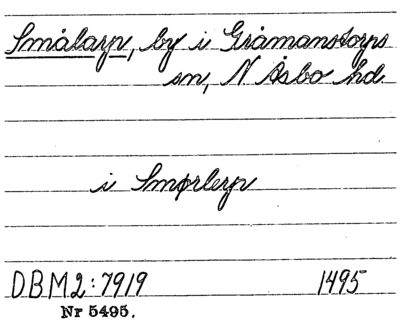 Smålarp, by i Gråmanstorps
sn, N. Åsbo hd.
i Smørlerp
DBM2:7919 1495
Nr 5495.